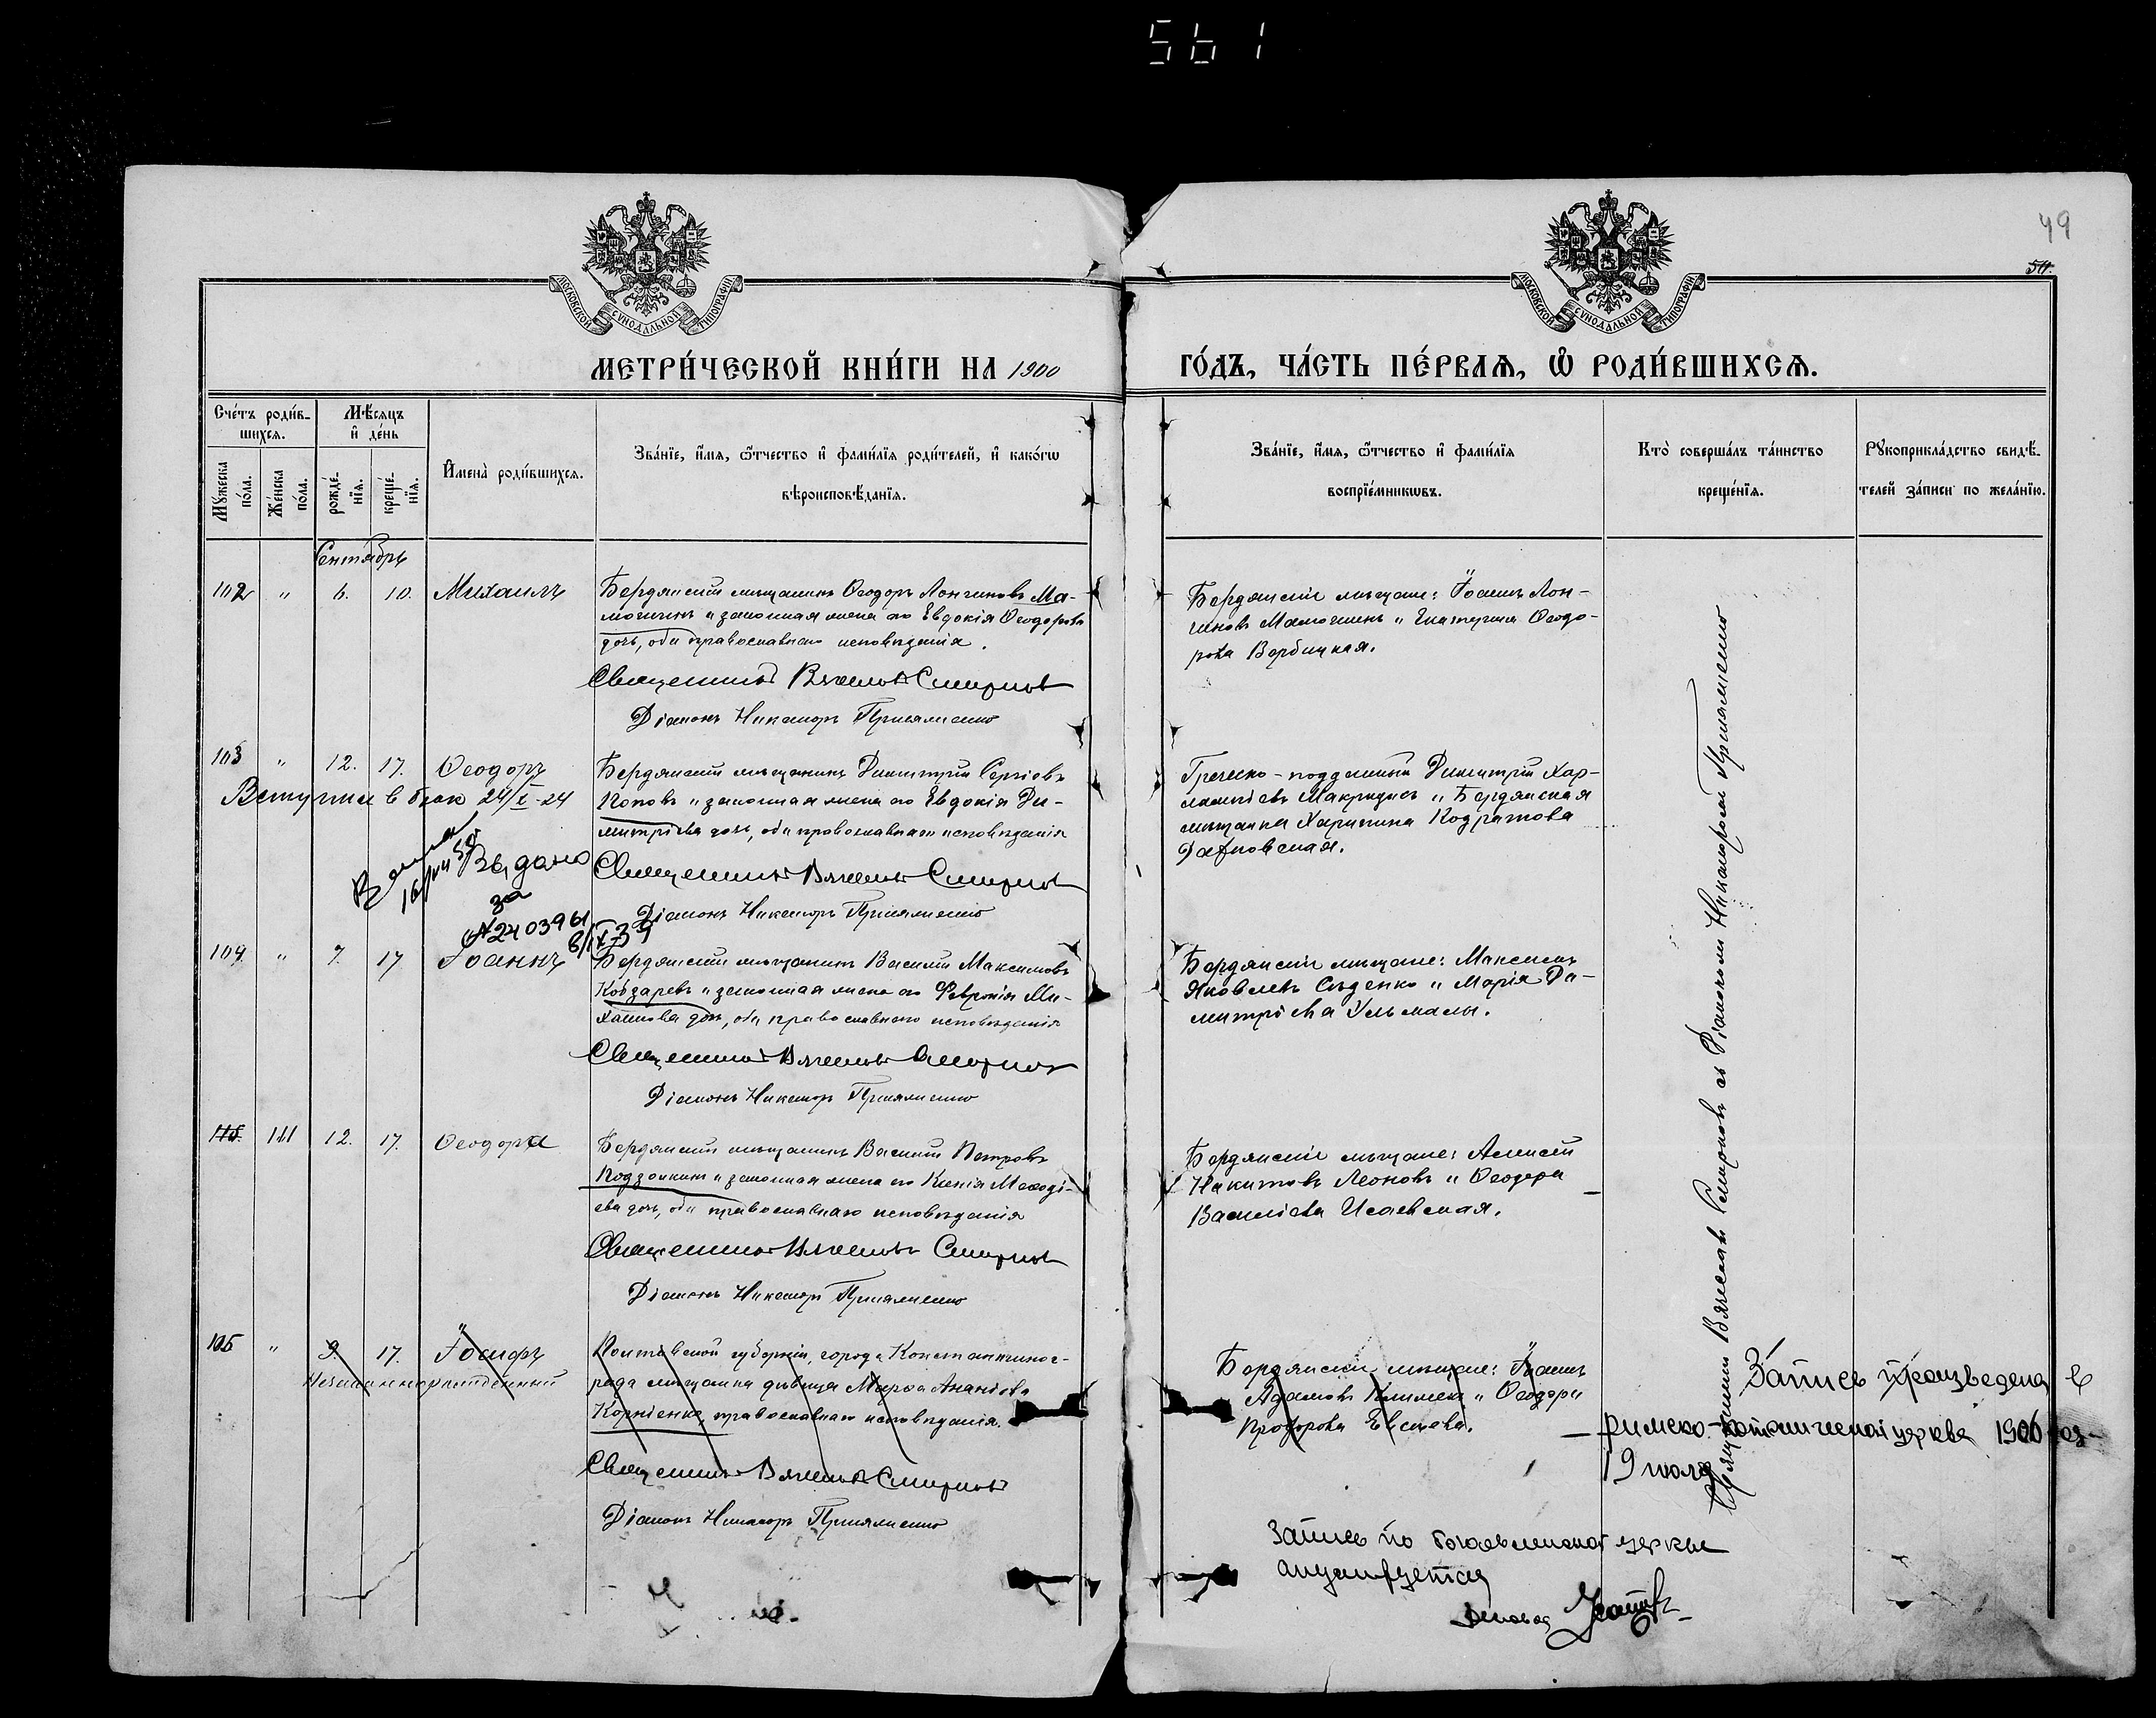 561
49
54.
МОСКОВСКОЙ СѴНОДАЛЬНОЙ ТИПОГРАФІИ
МОСКОВСКОЙ СѴНОДАЛЬНОЙ ТИПОГРАФІИ
МЕТРИ́ЧЕСКОЙ КНИ́ГИ НА 1900
ГО́ДЪ, ЧА́СТЬ ПЕ́РВАѦ, Ѽ РОДИ́ВШИХСѦ.
Сче́тъ роди́в-
шихсѧ.
Мꙋ́жеска
по́ла.
Же́нска
по́ла.
Мѣ́сѧцъ
и҆ де́нь
рожде́-
нїѧ.
креще́-
нїѧ.
И҆мена̀ роди́вшихсѧ.
Зва́нїе, и҆́мѧ, ѻ҆́тчество и҆ фами́лїѧ роди́телей, и҆ како́гѡ
вѣроисповѣ́данїѧ.
Зва́нїе, и҆́мѧ, ѻ҆́тчество и҆ фами́лїѧ
воспрїе́мникѡвъ.
Кто̀ соверша́лъ та́инство
креще́нїѧ.
Рꙋкоприкла́дство свидѣ́-
телей за́писи по жела́нїю.
Сентябрь
102 " 6. 10. Михаилъ
Бердянскій мѣщанинъ Ѳеодоръ Лонгиновъ Ма-
мончинъ и законная жена его Евдокія Ѳеодорова
дочь, оба православнаго исповѣданія.
Священникъ Вячеславъ Смирновъ
Діаконъ Никаноръ
Бердянскіе мѣщане: Іоаннъ Лон-
гиновъ Мамончинъ и Екатерина Ѳеодо-
рова Вербицкая.
103 " 12. 17. Ѳеодоръ
Вступил в брак 24/X-24
Выдано
за
№2403961
Бердянскій мѣщанинъ Димитрій Сергіевъ
Поповъ и законная жена его Евдокія Ди-
митріева дочь, оба православнаго исповѣданія
Священникъ Вячеславъ Смирновъ
Діаконъ Никаноръ
Греческо-подданный Димитрій Хар-
лампіевъ Макридисъ и Бердянская
мѣщанка Харитина Кодратова
104 " 7. 17 Іоаннъ
Бердянскій мѣщанинъ Василій Максимовъ
Кобзаревъ и законная жена его Февронія Ми-
хайлова дочь, оба православнаго исповѣданія
Священникъ Вячеславъ Смирновъ
Діаконъ Никаноръ
Бердянскіе мѣщане: Максимъ
Яковлевъ Сѣденко и Марія Ди-
митріева
111 12. 17. Ѳеодора
Бердянскій мѣщанинъ Василій Петровъ
Подзолкинъ и законная жена его Ксенія Меѳоді-
ева дочь, оба православнаго исповѣданія
Священникъ Вячеславъ Смирновъ
Діаконъ Никаноръ
Бердянскіе мѣщане: Алексій
Никитовъ Леоновъ и Ѳеодора
Василіева Исаевская.
105 " 9. 17. Іосифъ
Незаконнорожденный
Полтавской губерніи, города Константиног-
рада мѣщанка дѣвица Марѳа Ананіева
Корніенко, православнаго исповѣданія.
Священникъ Вячеславъ Смирновъ
Діаконъ Никаноръ
Бердянскіе мѣщане: Іоаннъ
Адамовъ Климека и Ѳеодора
Прохорова Евсеева.
Священникъ Вячеславъ Смирновъ съ Діакономъ Никаноромъ
Запись произведена в
римско-католической церкви 1906 года
19 июля
Запись по Богоявленской церкви
анулируется